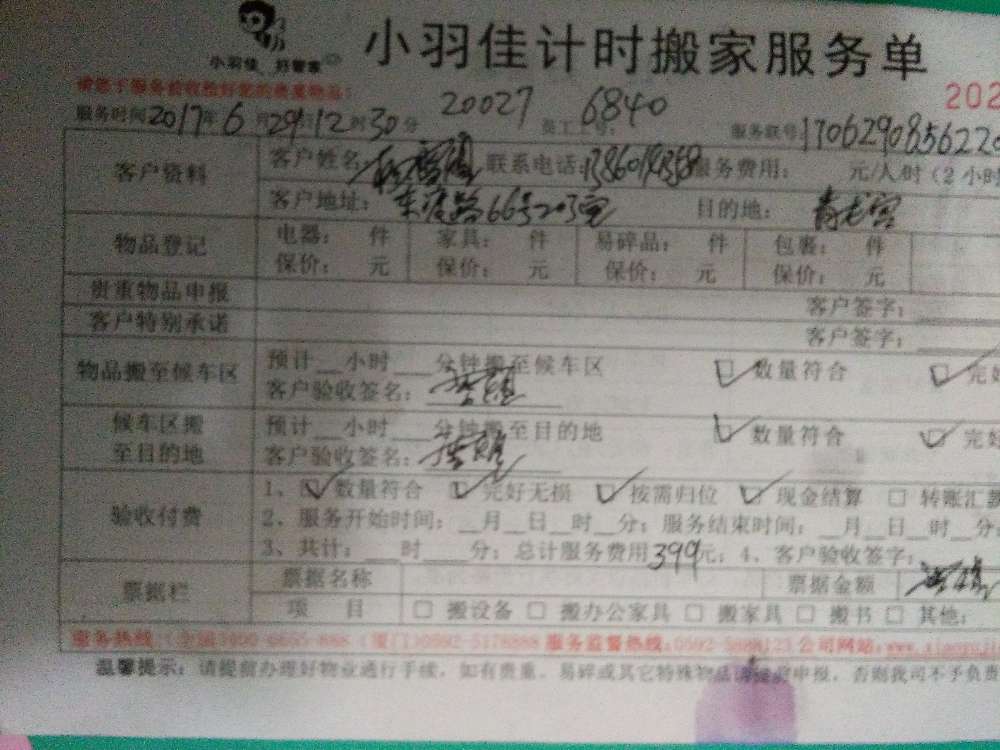 小羽佳 好管家
小羽佳计时搬家服务单
请您于服务前收捡好您的贵重物品！
20027 6840 202
服务时间2017年6月29日12时30分 员工工号： 服务联号170629085622
客户资料 客户姓名 联系电话： 服务费用： 元/人/时（2小时
客户地址：东渡路66号203室 目的地：青龙宫
物品登记 电器： 件 家具： 件 易碎品： 件 包裹： 件
保价： 元 保价： 元 保价： 元 保价： 元
贵重物品申报 客户签字：
客户特别承诺 客户签字：
物品搬至候车区 预计__小时___分钟搬至候车区 数量符合 完好
客户验收签名：
候车区搬至目的地 预计__小时___分钟搬至目的地 数量符合 完好
客户验收签名：
验收付费 1、数量符合 完好无损 按需归位 现金结算 转账汇
2、服务开始时间：__月__日__时__分；服务结束时间：__月__日__时__分
3、共计：___时___分；总计服务费用399元；4、客户验收签字：
票据栏 票据名称 票据金额
项目 搬设备 搬办公家具 搬家具 搬书 其他：
服务热线： 服务监督热线： 公司网站：
温馨提示：请提前办理好物业通行手续，如有贵重、易碎或其它特殊物品请提前申报，否则我司不予负责